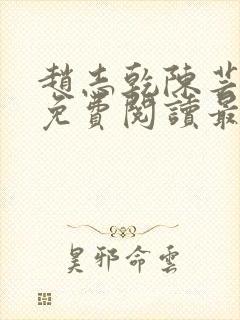 趙志乾陳芸
免費閱讀最
昊邪命雲